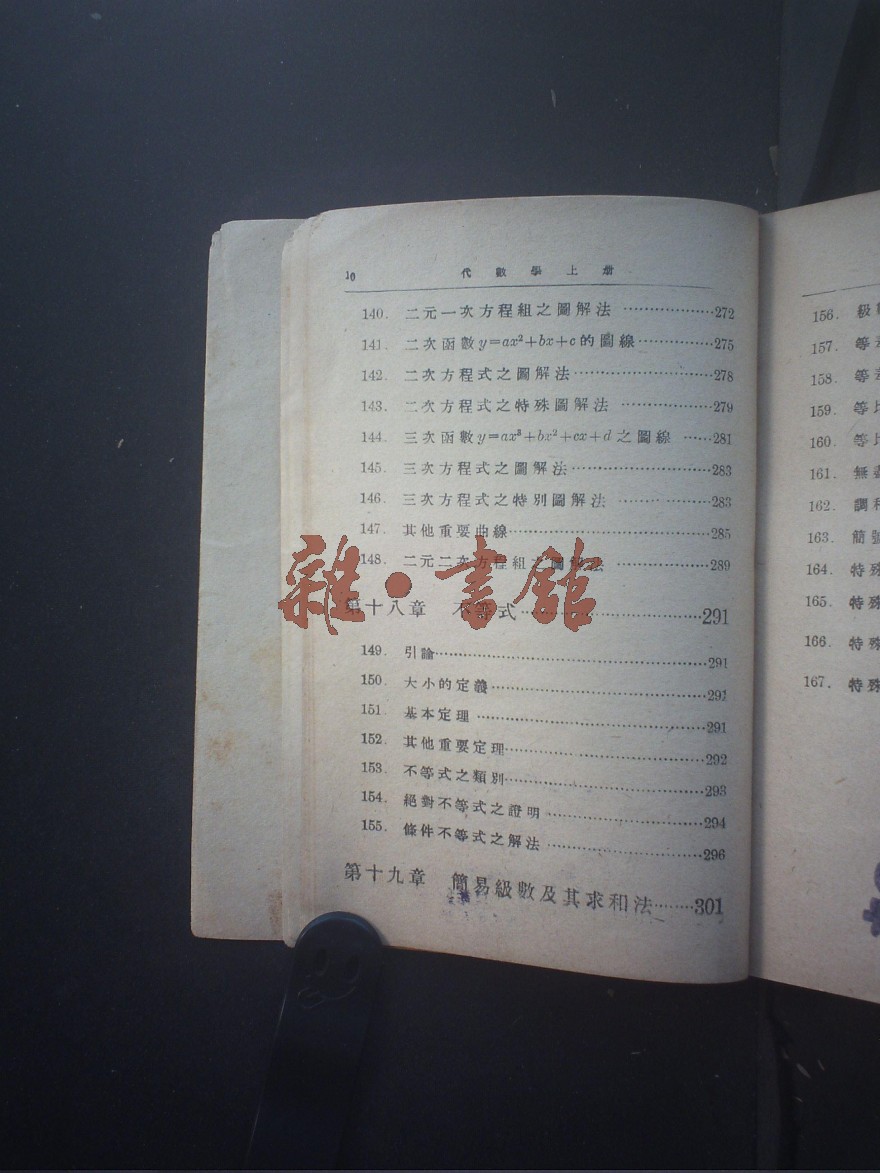 10 代數學上册
140. 二元一次方程組之圖解法 ⋯⋯272
141. 二次函數 y=ax²+bx+c 的圖線⋯⋯275
142. 二次方程式之圖解法⋯⋯278
143. 二次方程式之特殊圖解法 ⋯⋯279
144. 三次函數 y=ax³+bx²+cx+d 之圖線 ⋯⋯281
145. 三次方程式之圖解法⋯⋯283
146. 三次方程式之特別圖解法 ⋯⋯283
147. 其他重要曲線⋯⋯285
148. 二元二次方程組之圖解法 ⋯⋯289
雜·書館
第十八章 不等式⋯⋯291
149. 引論⋯⋯291
150. 大小的定義⋯⋯291
151. 基本定理⋯⋯291
152. 其他重要定理⋯⋯292
153. 不等式之類別⋯⋯293
154. 絕對不等式之證明⋯⋯294
155. 條件不等式之解法⋯⋯296
第十九章 簡易級數及其求和法⋯⋯301
156. 級
157. 等
158. 等
159. 等
160. 等
161. 無
162. 調
163. 簡
164. 特
165. 特
166. 特
167. 特